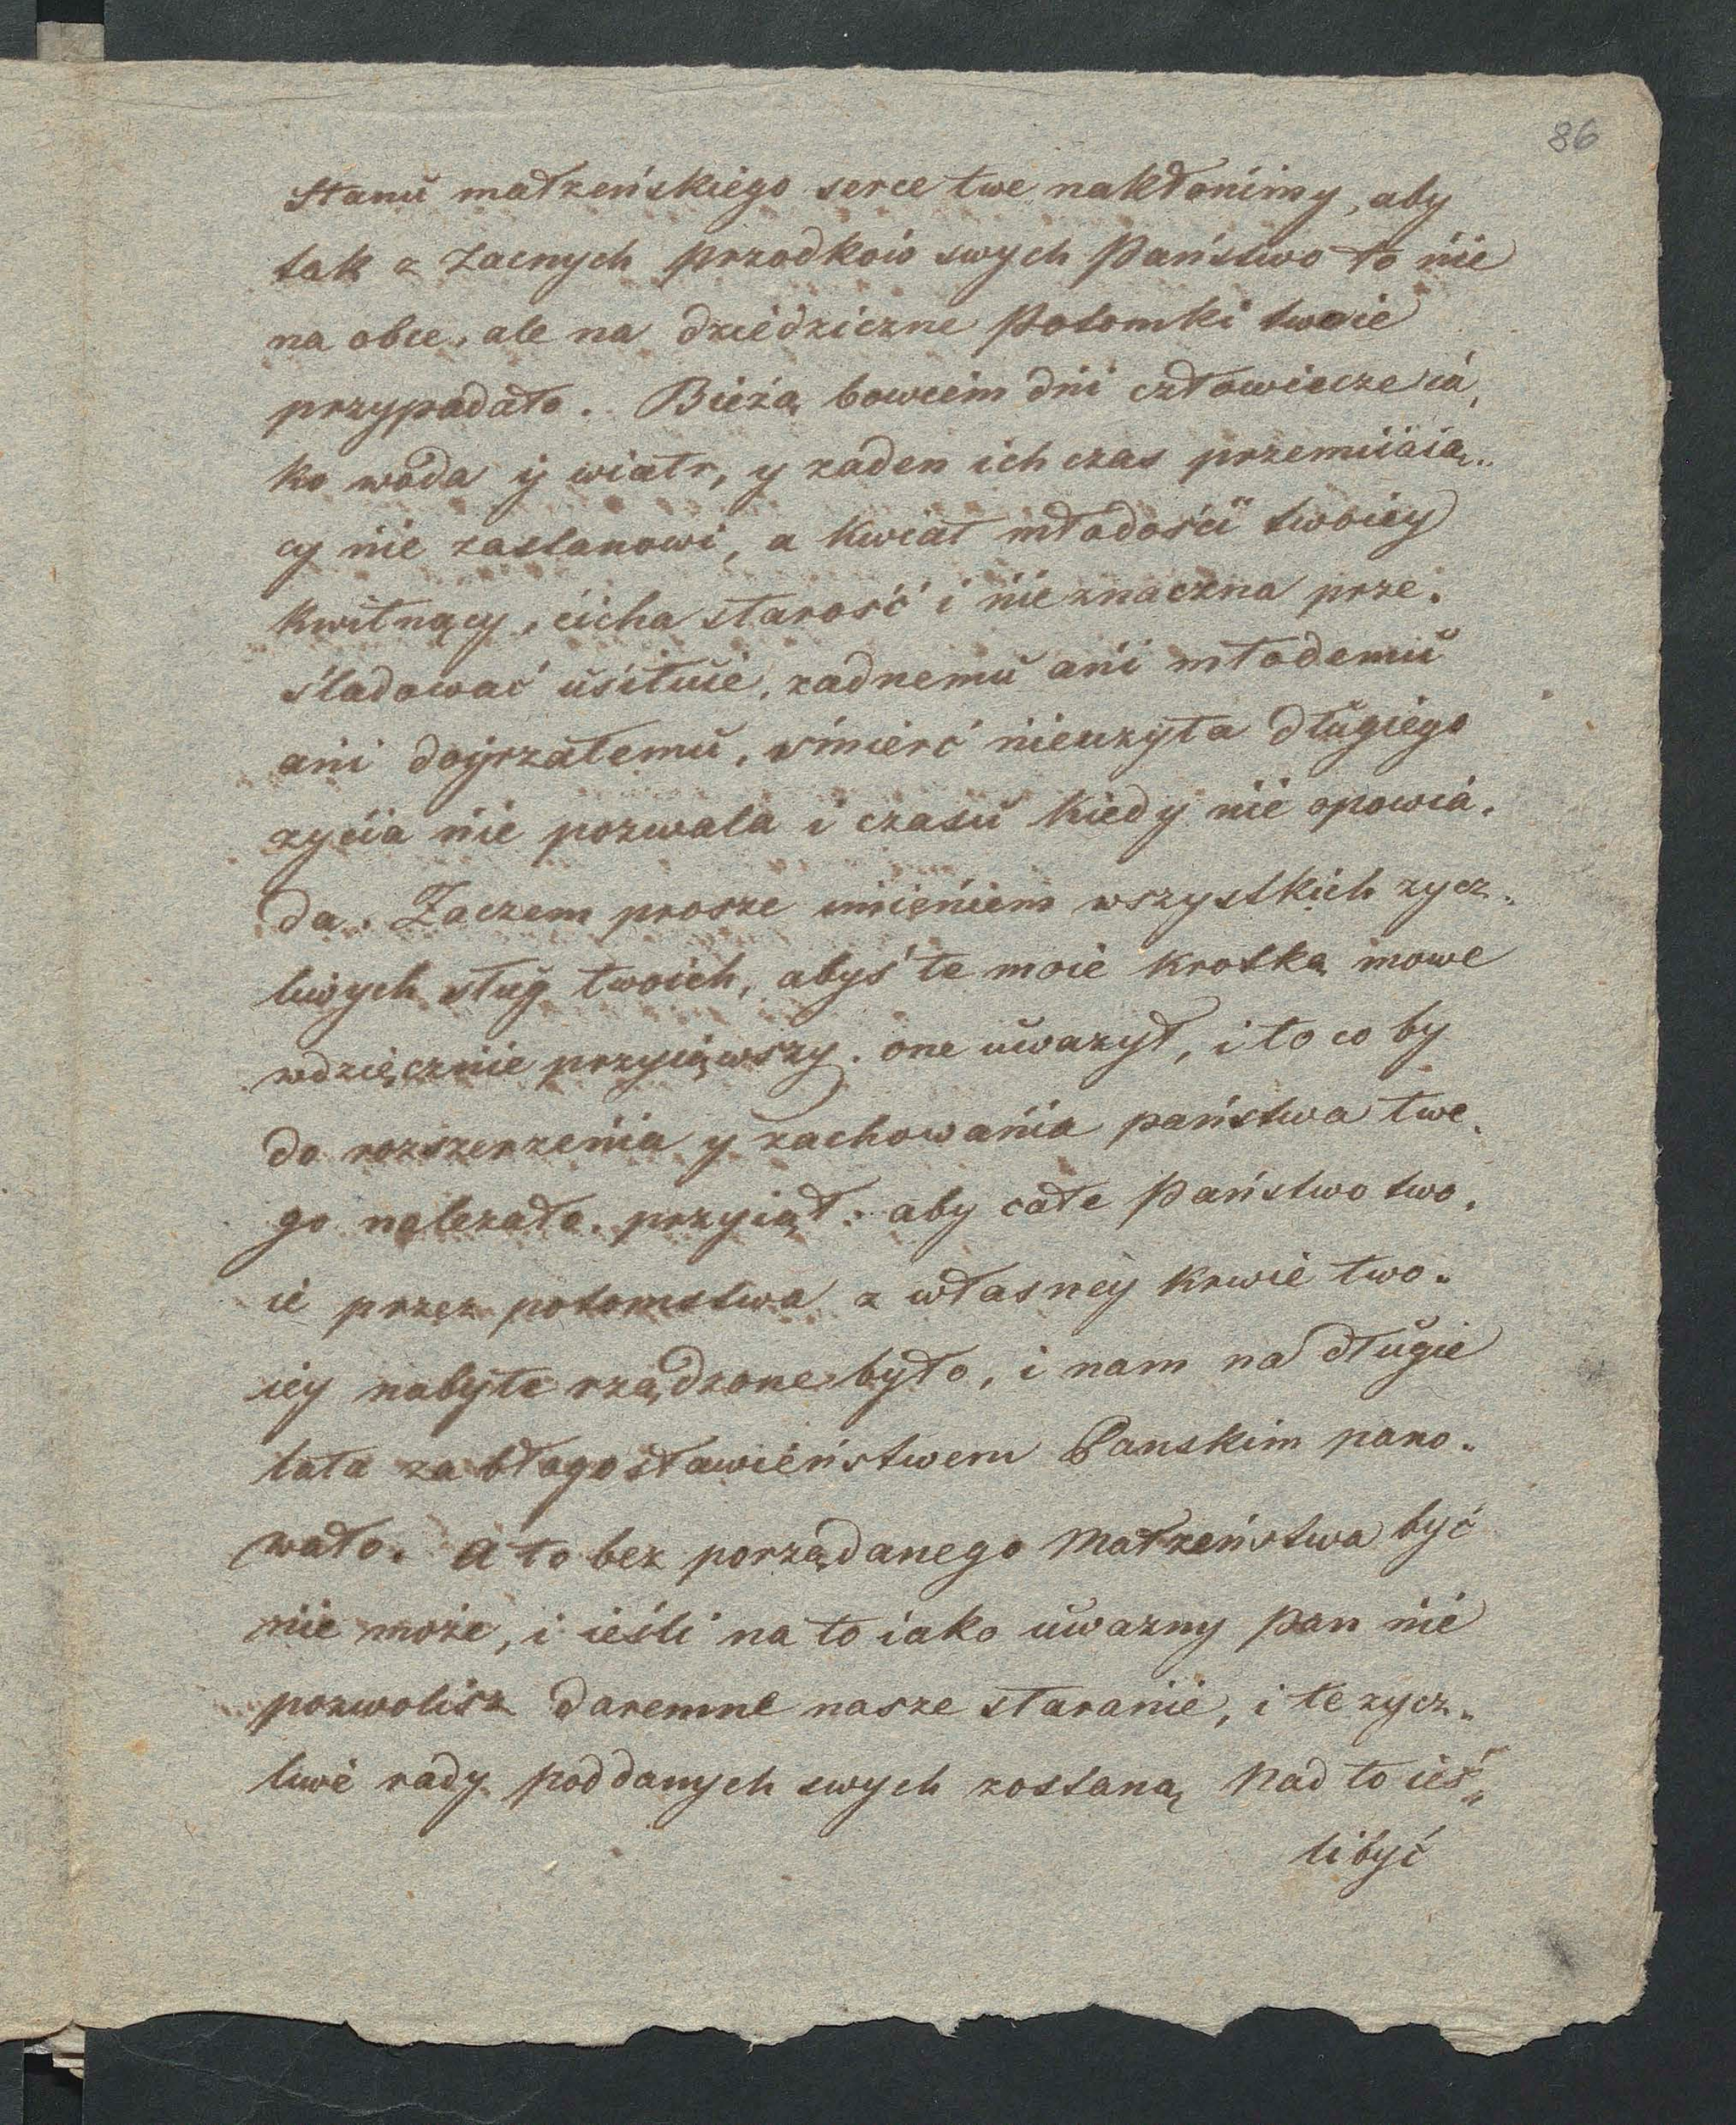 86
Stanu małzeńskiego serce twe nakłonimy, aby
tak z Zacnych przodków swych Państwo to nie
na obce, ale na dziedziczne Potomki twoie
przypadało. Bieżą bowiem dni człowiecze ia,
ko woda y wiatr, y zaden ich czas przemiiaią„
cy nie zastanowi, a Kwiat młodości twoiey
Kwitnący, cicha starość i nieznaczna prze.
śladować usiłuie, zadnemu ani młodemu
ani doyrzałemu, śmierć nieuzyta długiego
zycia nie pozwala i czasu kiedy nie opowia.
da. Zaczem prosze imieniem wszystkich zycz„
liwych sług twoich, abyś te moie krotką mowe
wdzięcznie przyiąwszy. one uwazył, i to co by
do rozszerzenia y zachowania państwa twe.
go nalezało. przyiął: aby całe Państwo two.
ie przez potomstwa z własney krwie two.
iey nabyte rządzone było, i nam na długie
lata za błogosławieństwem Panskim pano.
wało. A to bez porządanego Małzeństwa być
nie może, i ieśli na to iako uwazny Pan nie
pozwolisz daremne nasze staranie, i te zycz„
liwe rady poddanych swych zostaną Nad to ieś„
li być